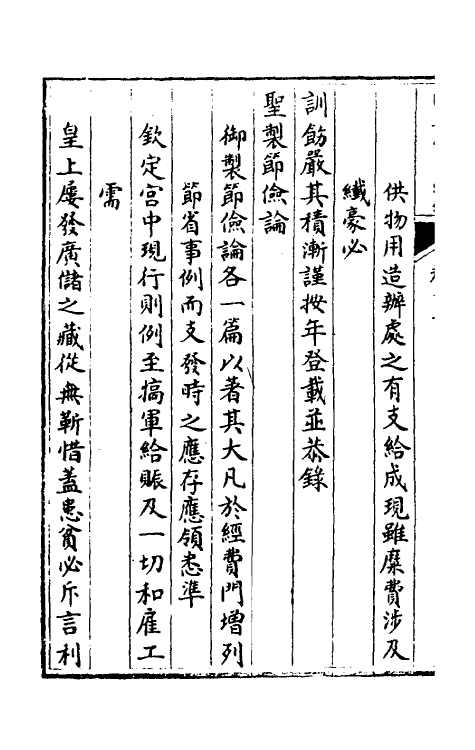 供物用造辦處之有支給成現雖糜費涉及
纎豪必
訓飭嚴其積漸謹按年登載並恭錄
聖製節儉論
御製節儉論各一篇以著其大凡於經費門增列
節省事例而支發時之應存應領悉準
欽定宮中現行則例至搞軍給賑及一切和雇工
需
皇上屢發廣儲之藏從無靳惜蓋患貧必斥言利